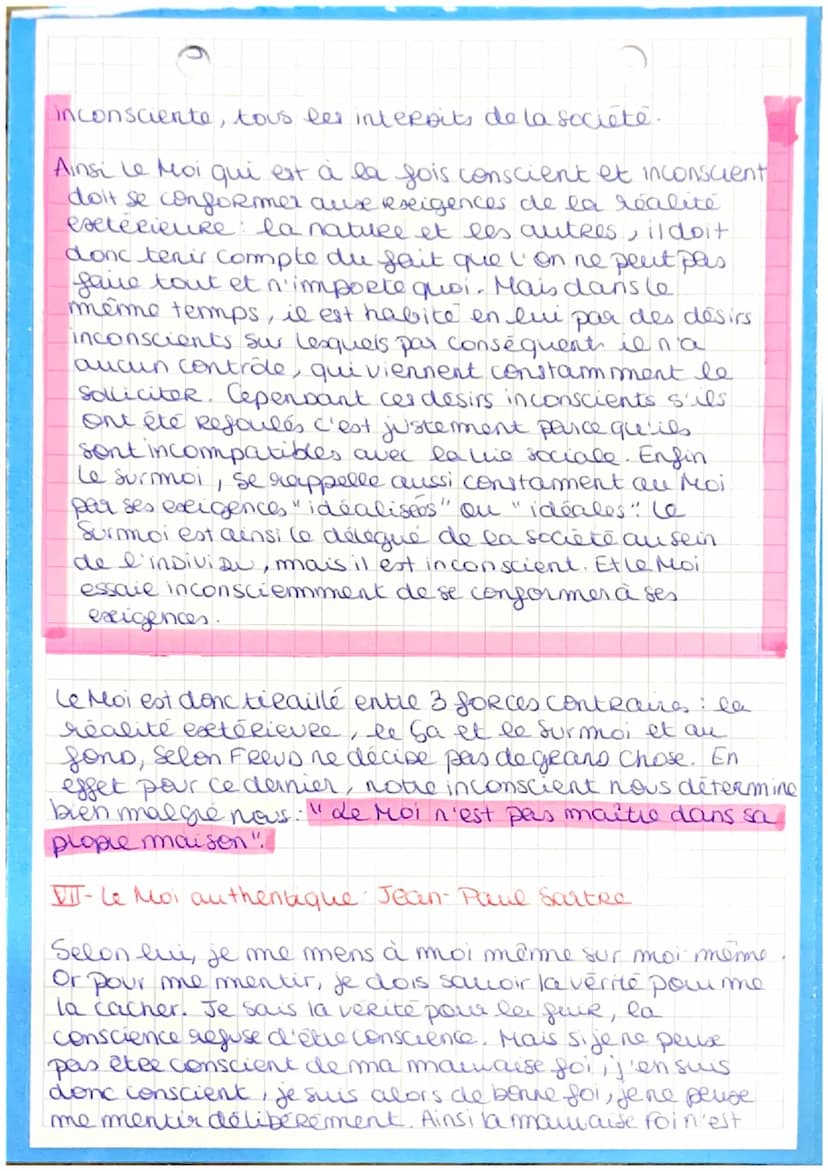 inconsciente, tous les interdits de la société.
Ainsi le Moi qui est à la fois conscient et inconscient
doit se conformer aux exigences de la réalité
extérieure : la nature et les autres, il doit
donc tenir compte du fait que l'on ne peut pas
faire tout et n'importe quoi. Mais dans le
même temps, il est habité en lui par des désirs
inconscients sur lesquels par conséquent il n'a
aucun contrôle, qui viennent constamment le
solliciter. Cependant ces désirs inconscients s'ils
ont été refoulés c'est justement parce qu'ils
sont incompatibles avec la vie sociale. Enfin
le surmoi, se rappelle aussi constament au Moi
par ses exigences "idéalisées" ou "idéales". Le
Surmoi est ainsi le délégué de la société au sein
de l'individu, mais il est inconscient. Et le Moi
essaie inconsciemment de se conformer à ses
exigences.
Le Moi est donc tiraillé entre 3 forces contraires : la
réalité extérieure, le Ça et le Surmoi et au
fond, selon Freud ne décide pas de grand chose. En
effet pour ce dernier, notre inconscient nous détermine
bien malgré nous : "Le Moi n'est pas maître dans sa
propre maison".
VII- Le Moi authentique : Jean-Paul Sartre
Selon lui, je me mens à moi même sur moi même.
Or pour me mentir, je dois savoir la vérité pour me
la cacher. Je sais la vérité pour la fuir, la
conscience refuse d'être conscience. Mais si je ne peux
pas être conscient de ma mauvaise foi, j'en suis
donc conscient, je suis alors de bonne foi, je ne peux
me mentir délibérément. Ainsi la mauvaise foi n'est